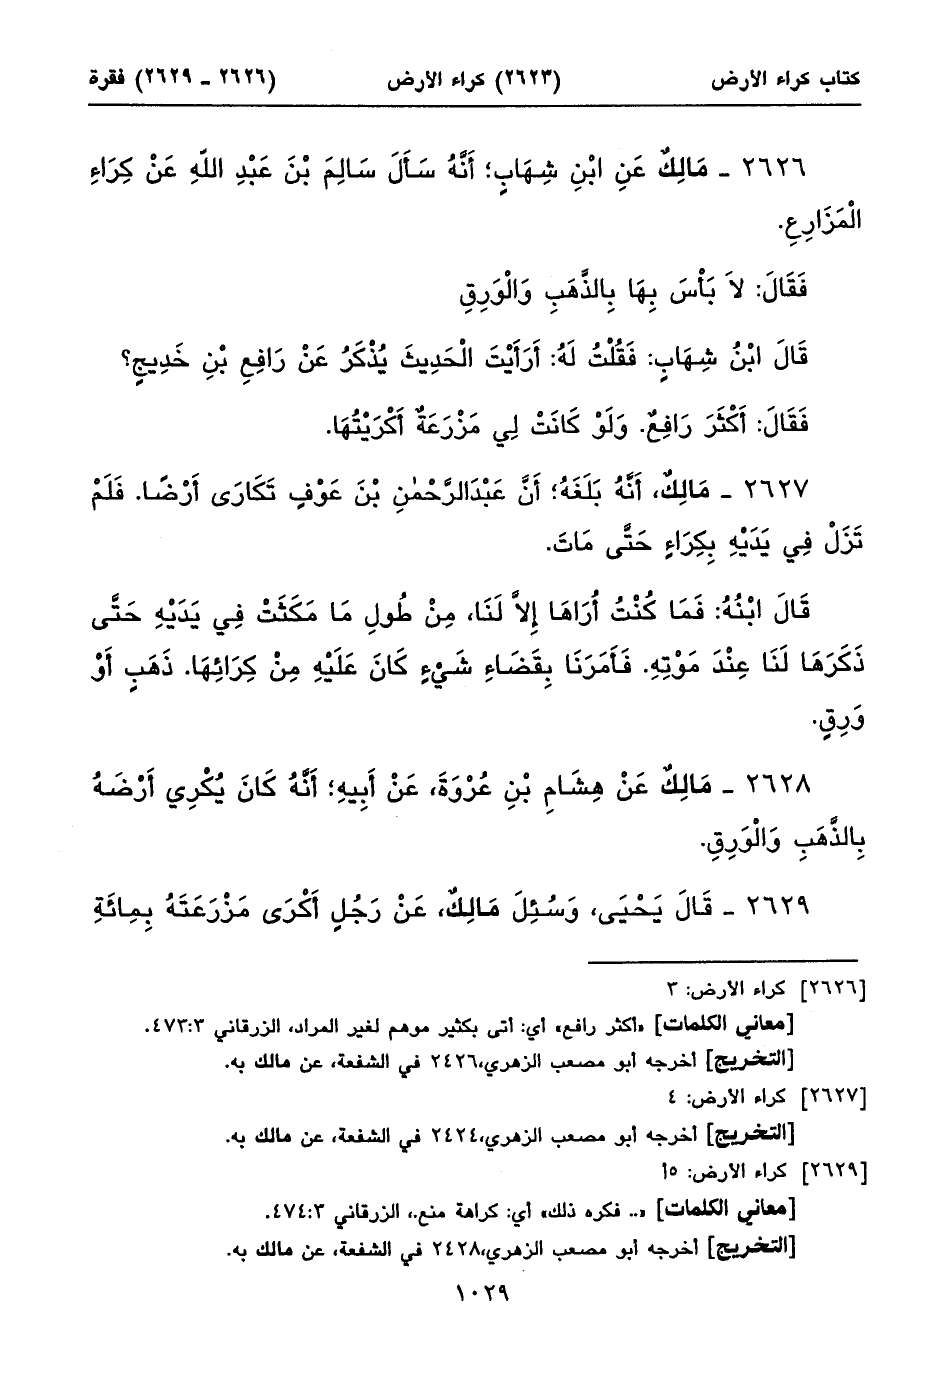 كتاب كراء الأرض (٢٦٢٣) كراء الأرض (٢٦٢٦ ـ ٢٦٢٩) فقرة
٢٦٢٦ ـ مَالِكٌ عَنِ ابْنِ شِهَابٍ؛ أَنَّهُ سَأَلَ سَالِمَ بْنَ عَبْدِ اللّهِ عَنْ كِرَاءِ
الْمَزَارِعِ.
فَقَالَ: لاَ بَأْسَ بِهَا بِالذَّهَبِ وَالْوَرِقِ
قَالَ ابْنُ شِهَابٍ: فَقُلْتُ لَهُ: أَرَأَيْتَ الْحَدِيثَ يُذْكَرُ عَنْ رَافِعِ بْنِ خَدِيجٍ؟
فَقَالَ: أَكْثَرَ رَافِعٌ. وَلَوْ كَانَتْ لِي مَزْرَعَةٌ أَكْرَيْتُهَا.
٢٦٢٧ ـ مَالِكٌ، أَنَّهُ بَلَغَهُ؛ أَنَّ عَبْدَالرَّحْمٰنِ بْنَ عَوْفٍ تَكَارَى أَرْضًا. فَلَمْ
تَزَلْ فِي يَدَيْهِ بِكِرَاءٍ حَتَّى مَاتَ.
قَالَ ابْنُهُ: فَمَا كُنْتُ أُرَاهَا إِلاَّ لَنَا، مِنْ طُولِ مَا مَكَثَتْ فِي يَدَيْهِ حَتَّى
ذَكَرَهَا لَنَا عِنْدَ مَوْتِهِ. فَأَمَرَنَا بِقَضَاءِ شَيْءٍ كَانَ عَلَيْهِ مِنْ كِرَائِهَا. ذَهَبٍ أَوْ
وَرِقٍ.
٢٦٢٨ ـ مَالِكٌ عَنْ هِشَامِ بْنِ عُرْوَةَ، عَنْ أَبِيهِ؛ أَنَّهُ كَانَ يُكْرِي أَرْضَهُ
بِالذَّهَبِ وَالْوَرِقِ.
٢٦٢٩ ـ قَالَ يَحْيَى، وَسُئِلَ مَالِكٌ، عَنْ رَجُلٍ أَكْرَى مَزْرَعَتَهُ بِمِائَةِ
[٢٦٢٦] كراء الأرض: ٣
[معاني الكلمات] «أكثر رافع» أي: أتى بكثير موهم لغير المراد، الزرقاني ٤٧٣:٣.
[التخريج] أخرجه أبو مصعب الزهري،٢٤٢٦ في الشفعة، عن مالك به.
[٢٦٢٧] كراء الأرض: ٤
[التخريج] أخرجه أبو مصعب الزهري،٢٤٢٤ في الشفعة، عن مالك به.
[٢٦٢٩] كراء الأرض: ٥أ
[معاني الكلمات] «.. فكره ذلك» أي: كراهة منع.، الزرقاني ٤٧٤:٣.
[التخريج] أخرجه أبو مصعب الزهري،٢٤٢٨ في الشفعة، عن مالك به.
١٠٢٩